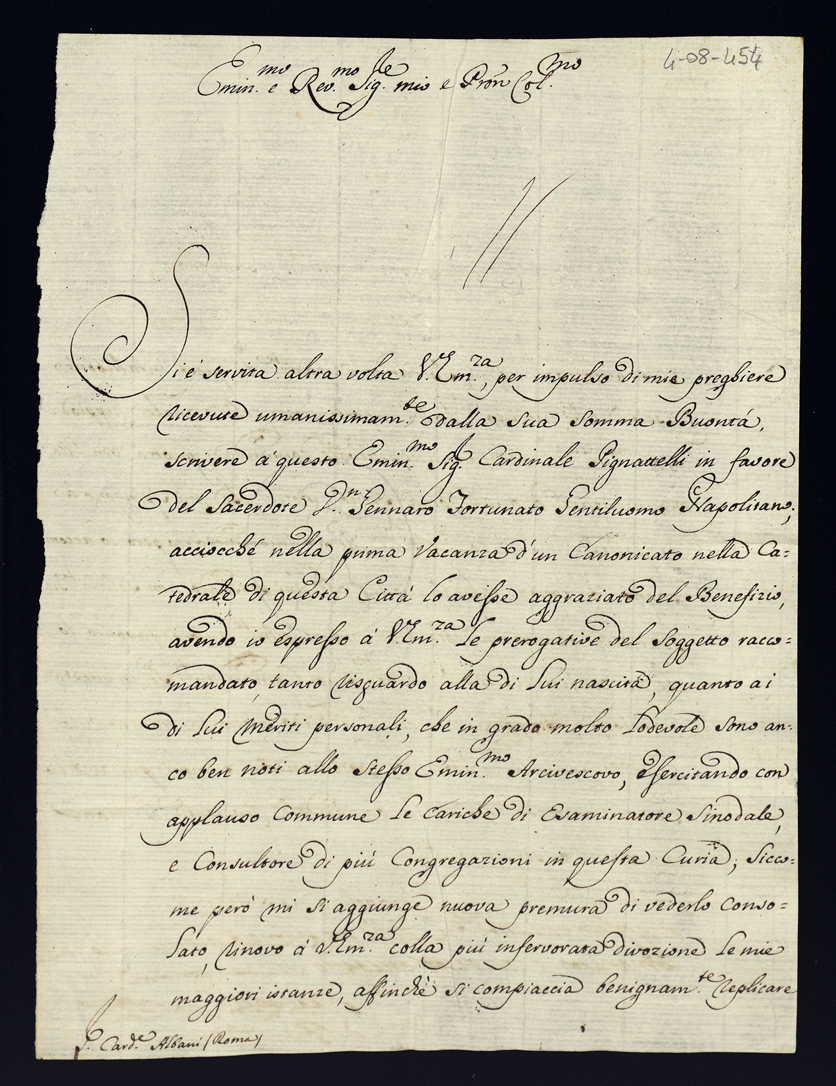 4-08-454
Emin.mo e Rev.mo Sig.re mio e Pron Col.mo
Si é servita altra volta V. Em.za, per impulso di mie preghiere
ricevute umanissimam.te dalla sua somma Buontá,
scrivere á questo Emin.mo Sig.r Cardinale Pignattelli in favore
del Sacerdote D.n Gennaro Fortunato Gentiluomo Napolitano,
acciocché nella prima Vacanza d'un Canonicato nella Ca=
tedrale di questa Cittá lo avesse aggraziato del Benefizio,
avendo io espresso á V. Em.za le prerogative del soggetto racco=
mandato, tanto risguardo alla di Lui nascita, quanto ai
di Lui meriti personali, che in grado molto lodevole sono an=
co ben noti allo stesso Emin.mo Arcivescovo, esercitando con
applauso commune le cariche di Esaminatore Sinodale,
e Consultore di piú Congregazioni in questa Curia; sicco=
me peró mi si aggiunge nuova premura di vederlo conso=
lato, rinovo á V. Em.za colla piú infervorata divozione le mie
maggiori istanze, affinché si compiaccia benignam.te replicare
S.r Card.e Albani (Roma)